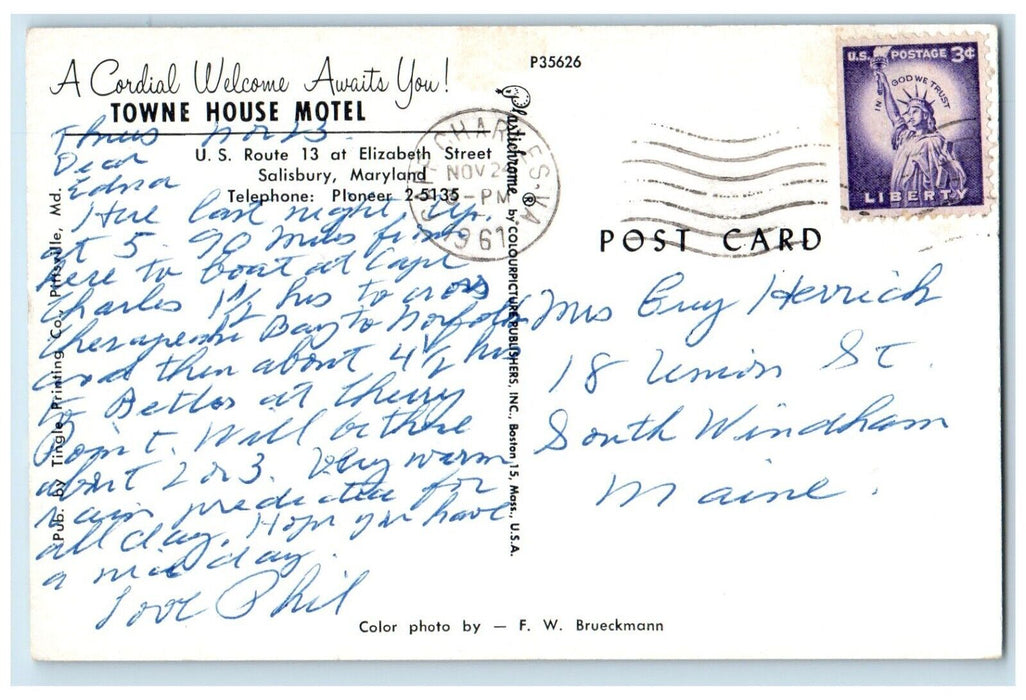 A Cordial Welcome Awaits You!
TOWNE HOUSE MOTEL
U. S. Route 13 at Elizabeth Street
Salisbury, Maryland
Telephone: PIoneer 2-5135
P35626
Thurs Nov 23.
Dear
Edna
Here last night, up
at 5. 90 miles from
here to boat at Cape
Charles 1½ hrs to cross
Chesapeake Bay to Norfolk
and then about 4½ hrs
to Bettes at Cherry
Point. Will be there
about 2 or 3. Very warm
rain predicted for
all day. Hope you have
a nice day.
Love Phil
Pub. by Tingle Printing Co., Pittsville, Md.
Plastichrome ® by COLOURPICTURE PUBLISHERS, INC., Boston 15, Mass., U.S.A.
Color photo by — F. W. Brueckmann
CHARLES VA
NOV 24
PM
1961
U.S. POSTAGE 3¢
IN GOD WE TRUST
LIBERTY
POST CARD
Mrs Guy Herrich
18 Union St.
South Windham
Maine.